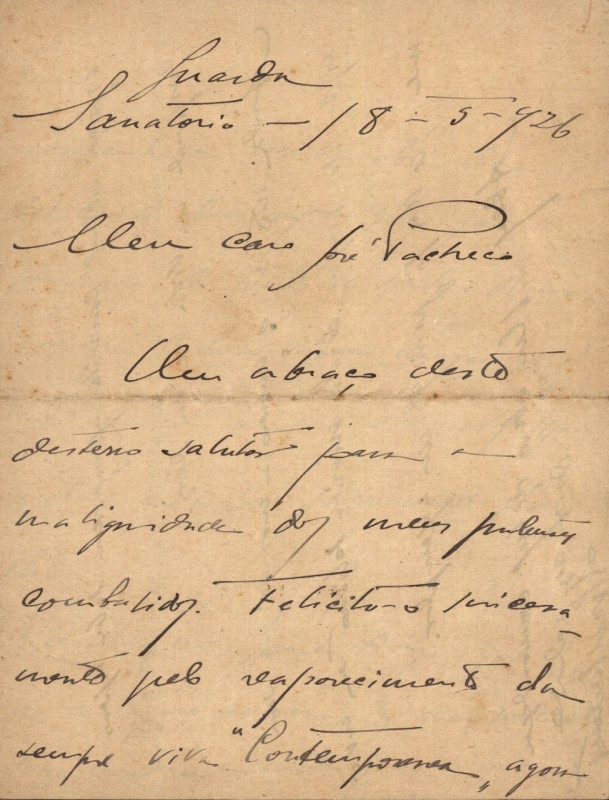 Guarda
Sanatorio — 18 - 5 - 926
Meu caro José Pacheco
Um abraço deste
desterro salutar para a
malignidade dos meus pulmões
combalidos. Felicito-o sincera-
mente pelo reaparecimento da
sempre viva "Contemporanea", agora